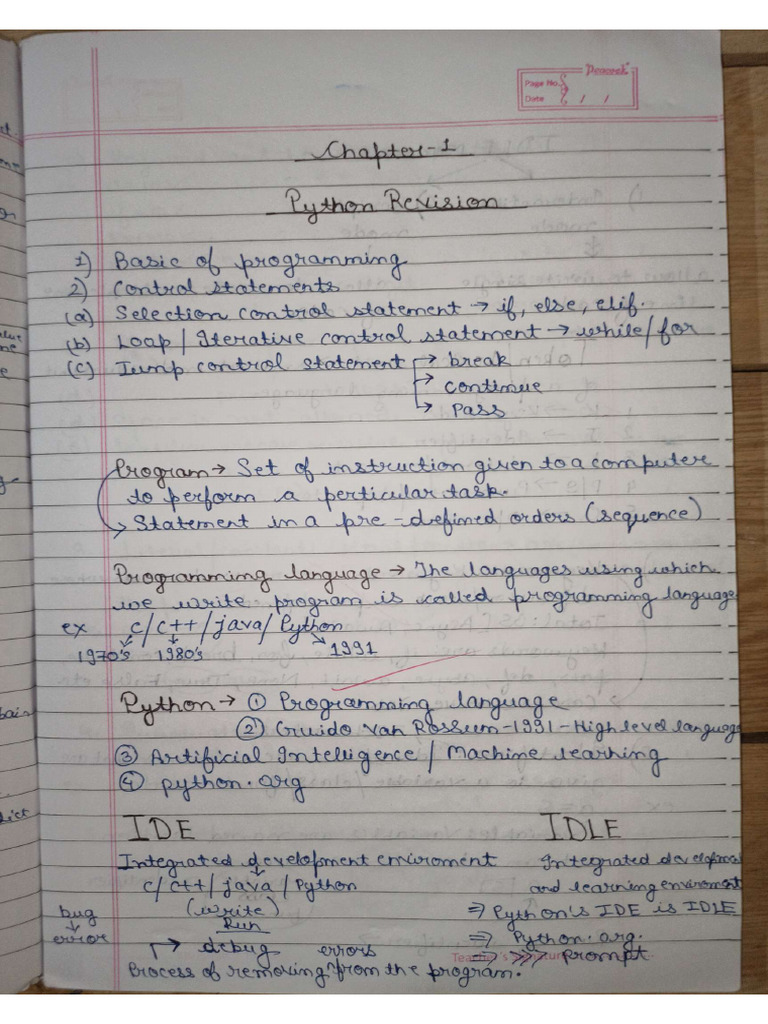 Peacock
Page No.
Date / /
Chapter-1
Python Revision
1) Basic of programming
2) Control statements
(a) Selection control statement → if, else, elif.
(b) Loop / Iterative control statement → while/for
(c) Jump control statement → break
→ continue
→ Pass
Program → Set of instruction given to a computer
to perform a perticular task.
→ Statement in a pre-defined orders (sequence)
Programming language → The languages using which
we write program is called programming language
ex C/C++/java/Python
1970's 1980's 1991
Python → ① Programming language
② Guido Van Rossum-1991-High level language
③ Artificial Intelligence / Machine learning
④ python.org
IDE IDLE
Integrated development enviroment Integrated develofme
C/C++/java/Python and learning enviroment
bug (write) ⇒ Python's IDE is IDLE
↓ Run
error → debug errors ⇒ Python.org.
⇒ >>> prompt
Process of removing from the program.